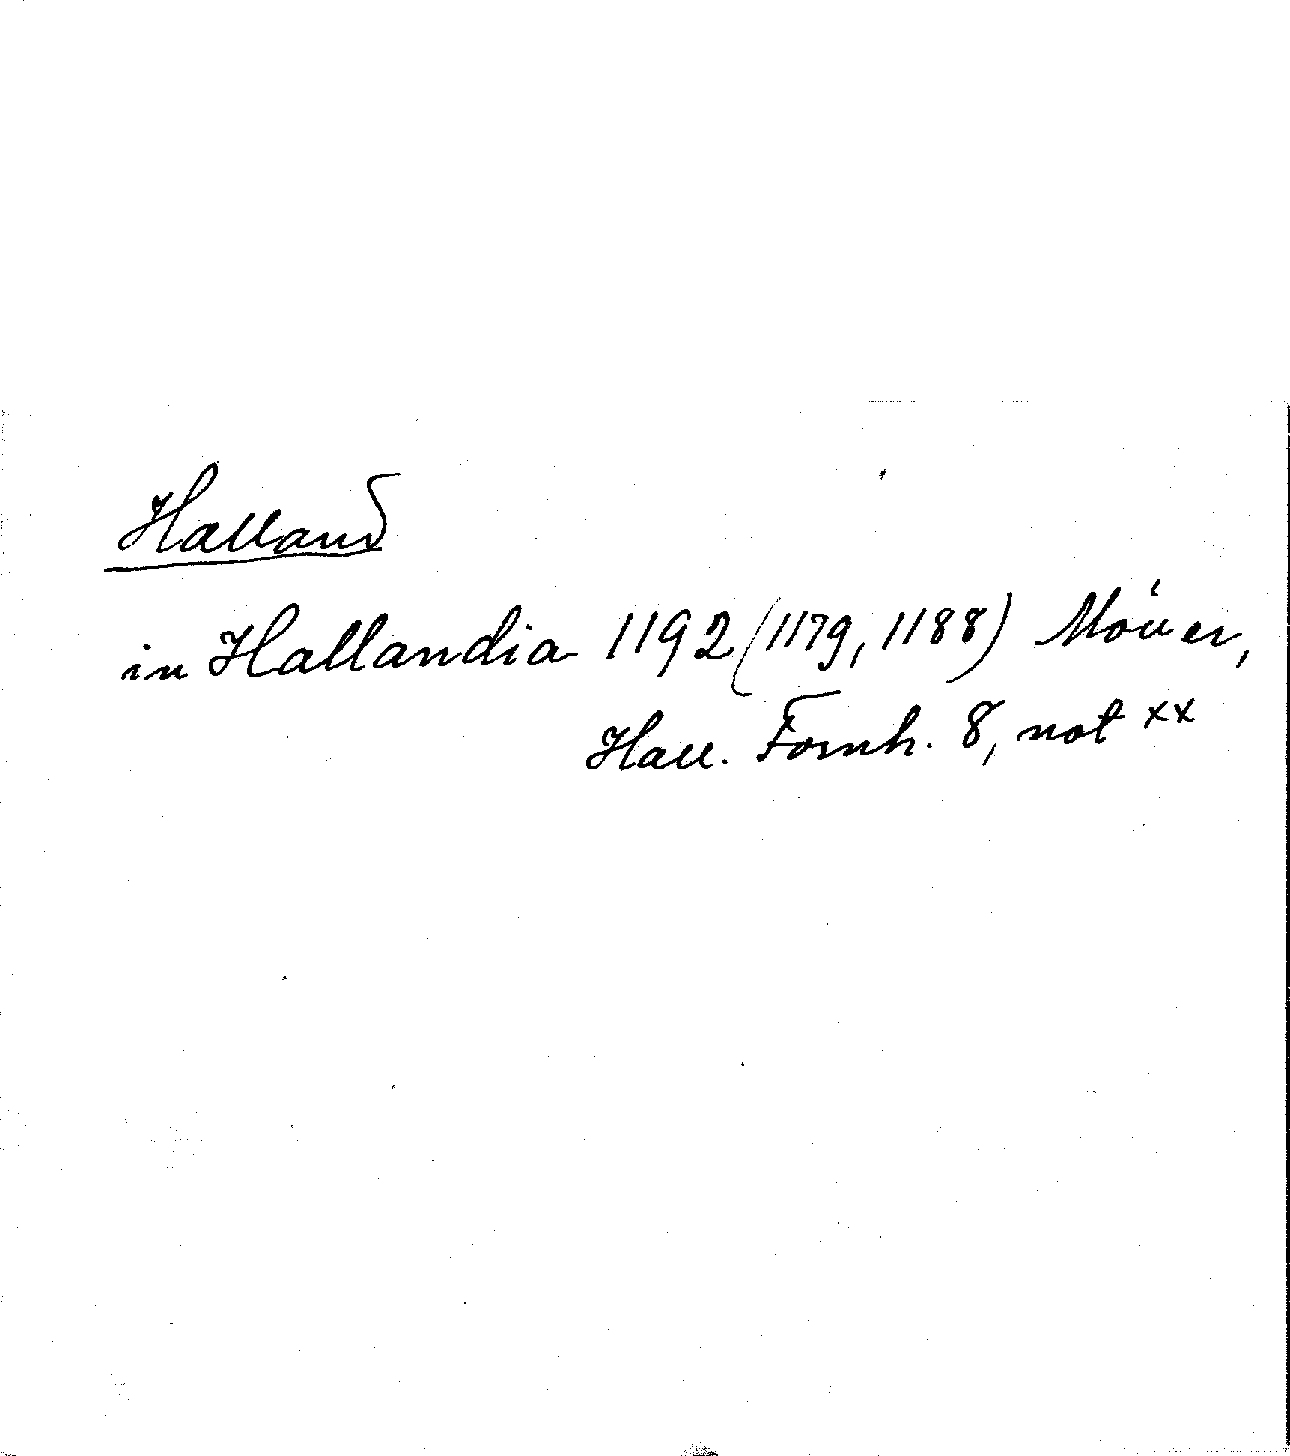 Halland
in Hallandia 1192 (1179, 1188) Möller,
Hall. Fornh. 8, not xx